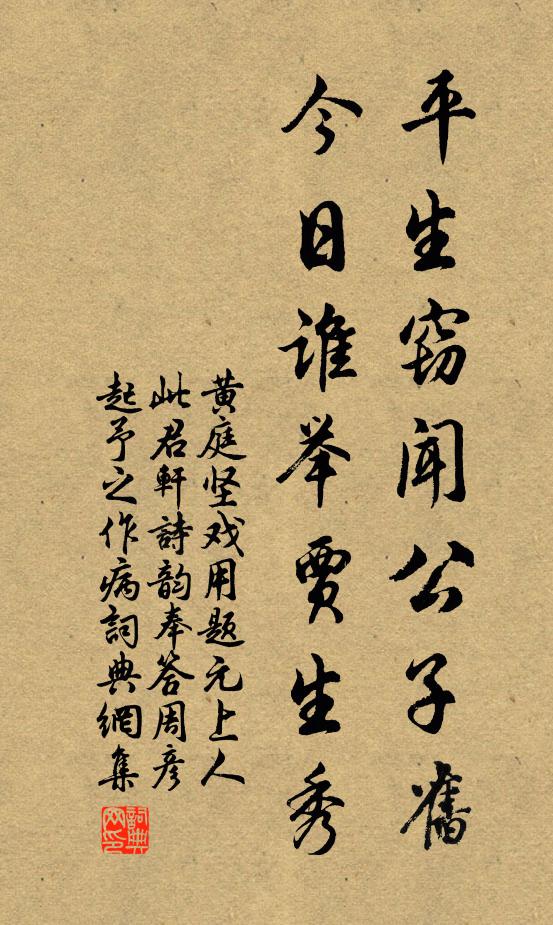 平生窃闻公子舊
今日谁举贾生秀
黄庭坚戏用题元上人
此君軒詩韵奉答周彦
起予之作病詞典網集
詞典网印